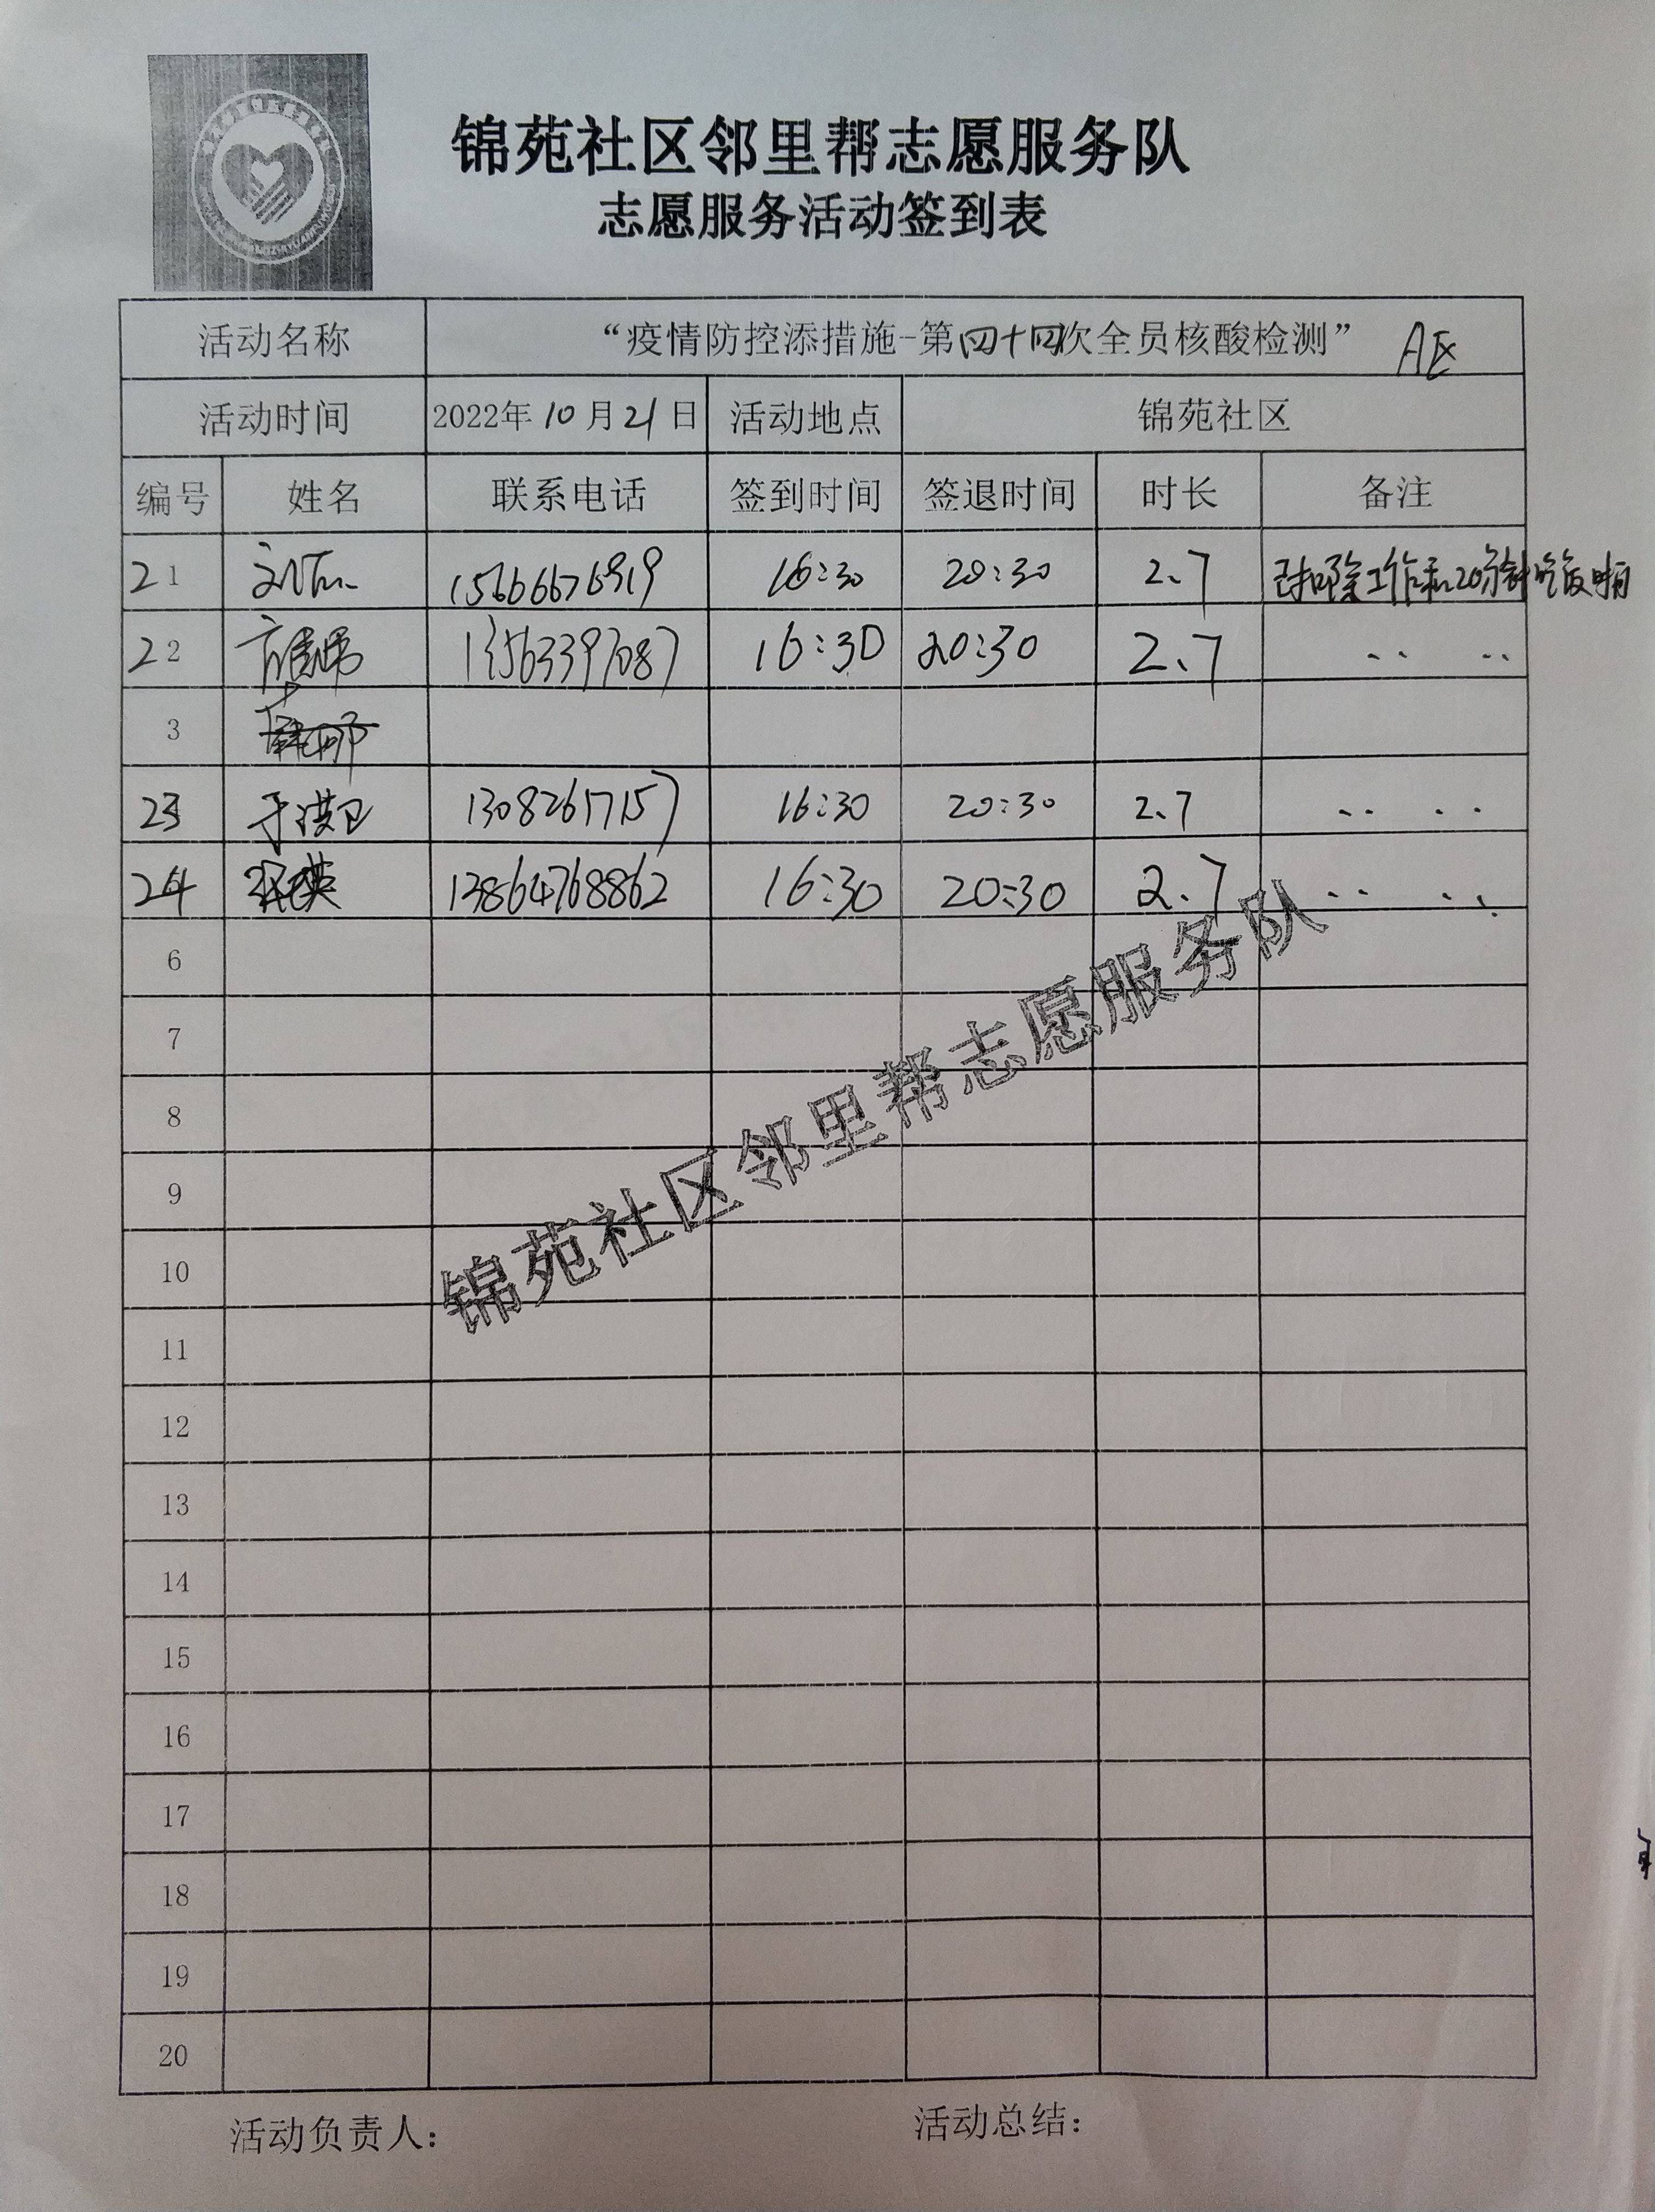 锦苑社区邻里帮志愿服务队
志愿服务活动签到表
活动名称 “疫情防控添措施-第四十四次全员核酸检测” A区
活动时间 2022年10月21日 活动地点 锦苑社区
编号 姓名 联系电话 签到时间 签退时间 时长 备注
21 15666676919 16:30 20:30 2.7 已扣除工作和20分钟吃饭时间
22 16:30 20:30 2.7
3
23 于洪卫 13082617157 16:30 20:30 2.7
24 13864768862 16:30 20:30 2.7
6
7
8
9
10
11
12
13
14
15
16
17
18
19
20
锦苑社区邻里帮志愿服务队
活动负责人： 活动总结：